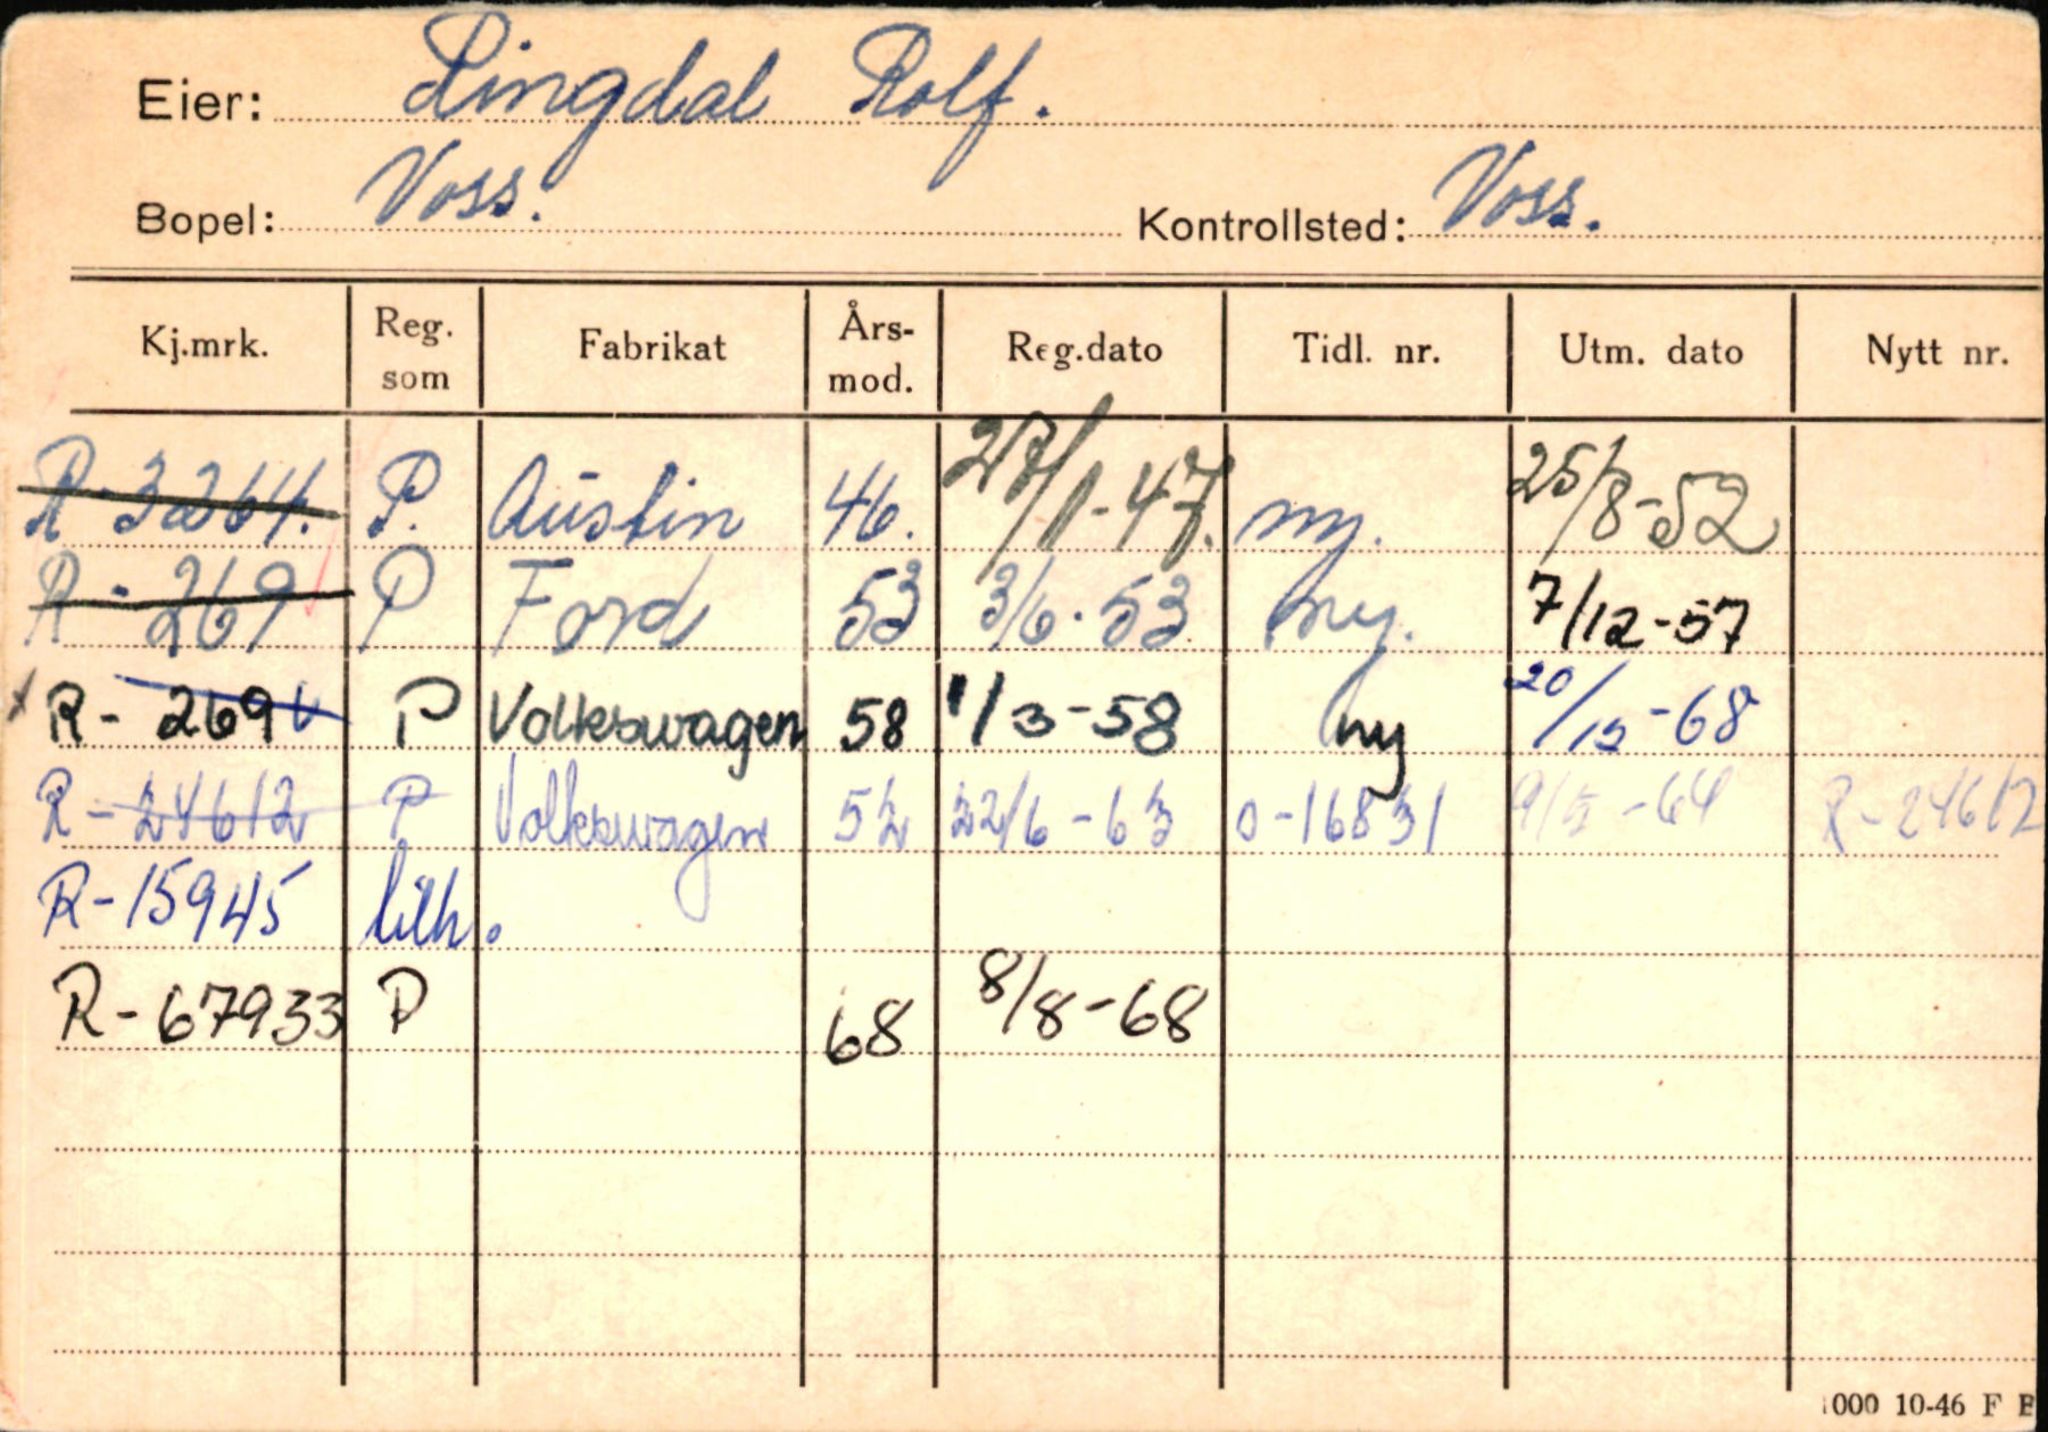 Eier: Lingdal Rolf.
Bopel: Voss. Kontrollsted: Voss.
Kj.mrk. Reg. som Fabrikat Års-mod. Reg.dato Tidl. nr. Utm. dato Nytt nr.
R-3264. P. Austin 46. 27/1-47. ny. 25/8-52
R-269 P Ford 53 3/6-53 ny. 7/12-57
R-269 P Volkswagen 58 1/3-58 ny 20/12-68
R-24612 P Volkswagen 52 22/6-63 O-16831 9/5-64 R-24612
R-15945 tilh.
R-67933 P 68 8/8-68
1000 10-46 F